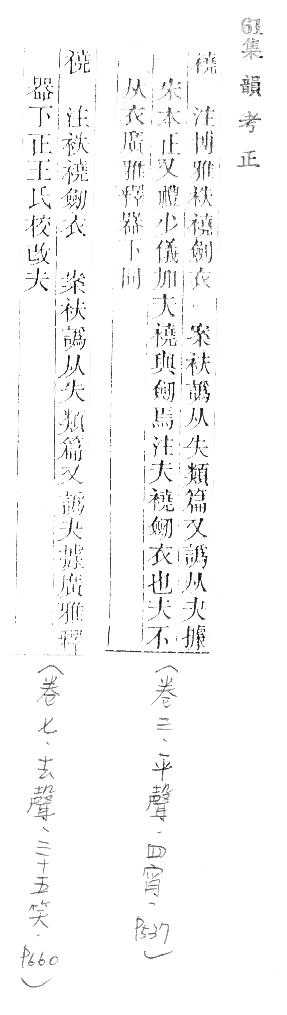 63集韻考正
襓 注博雅袟襓劎衣 案袟譌从失類篇又譌从夬據
宋本正又禮少儀加夫襓與劎焉注夫襓劎衣也夫不
从衣廣雅釋器下同
(卷三、平聲、四宵、P537)
襓 注袟襓劎衣 案袟譌从失類篇又譌夬據廣雅釋
器下正王氏校改夫
(卷七、去聲、三十五笑、P660)